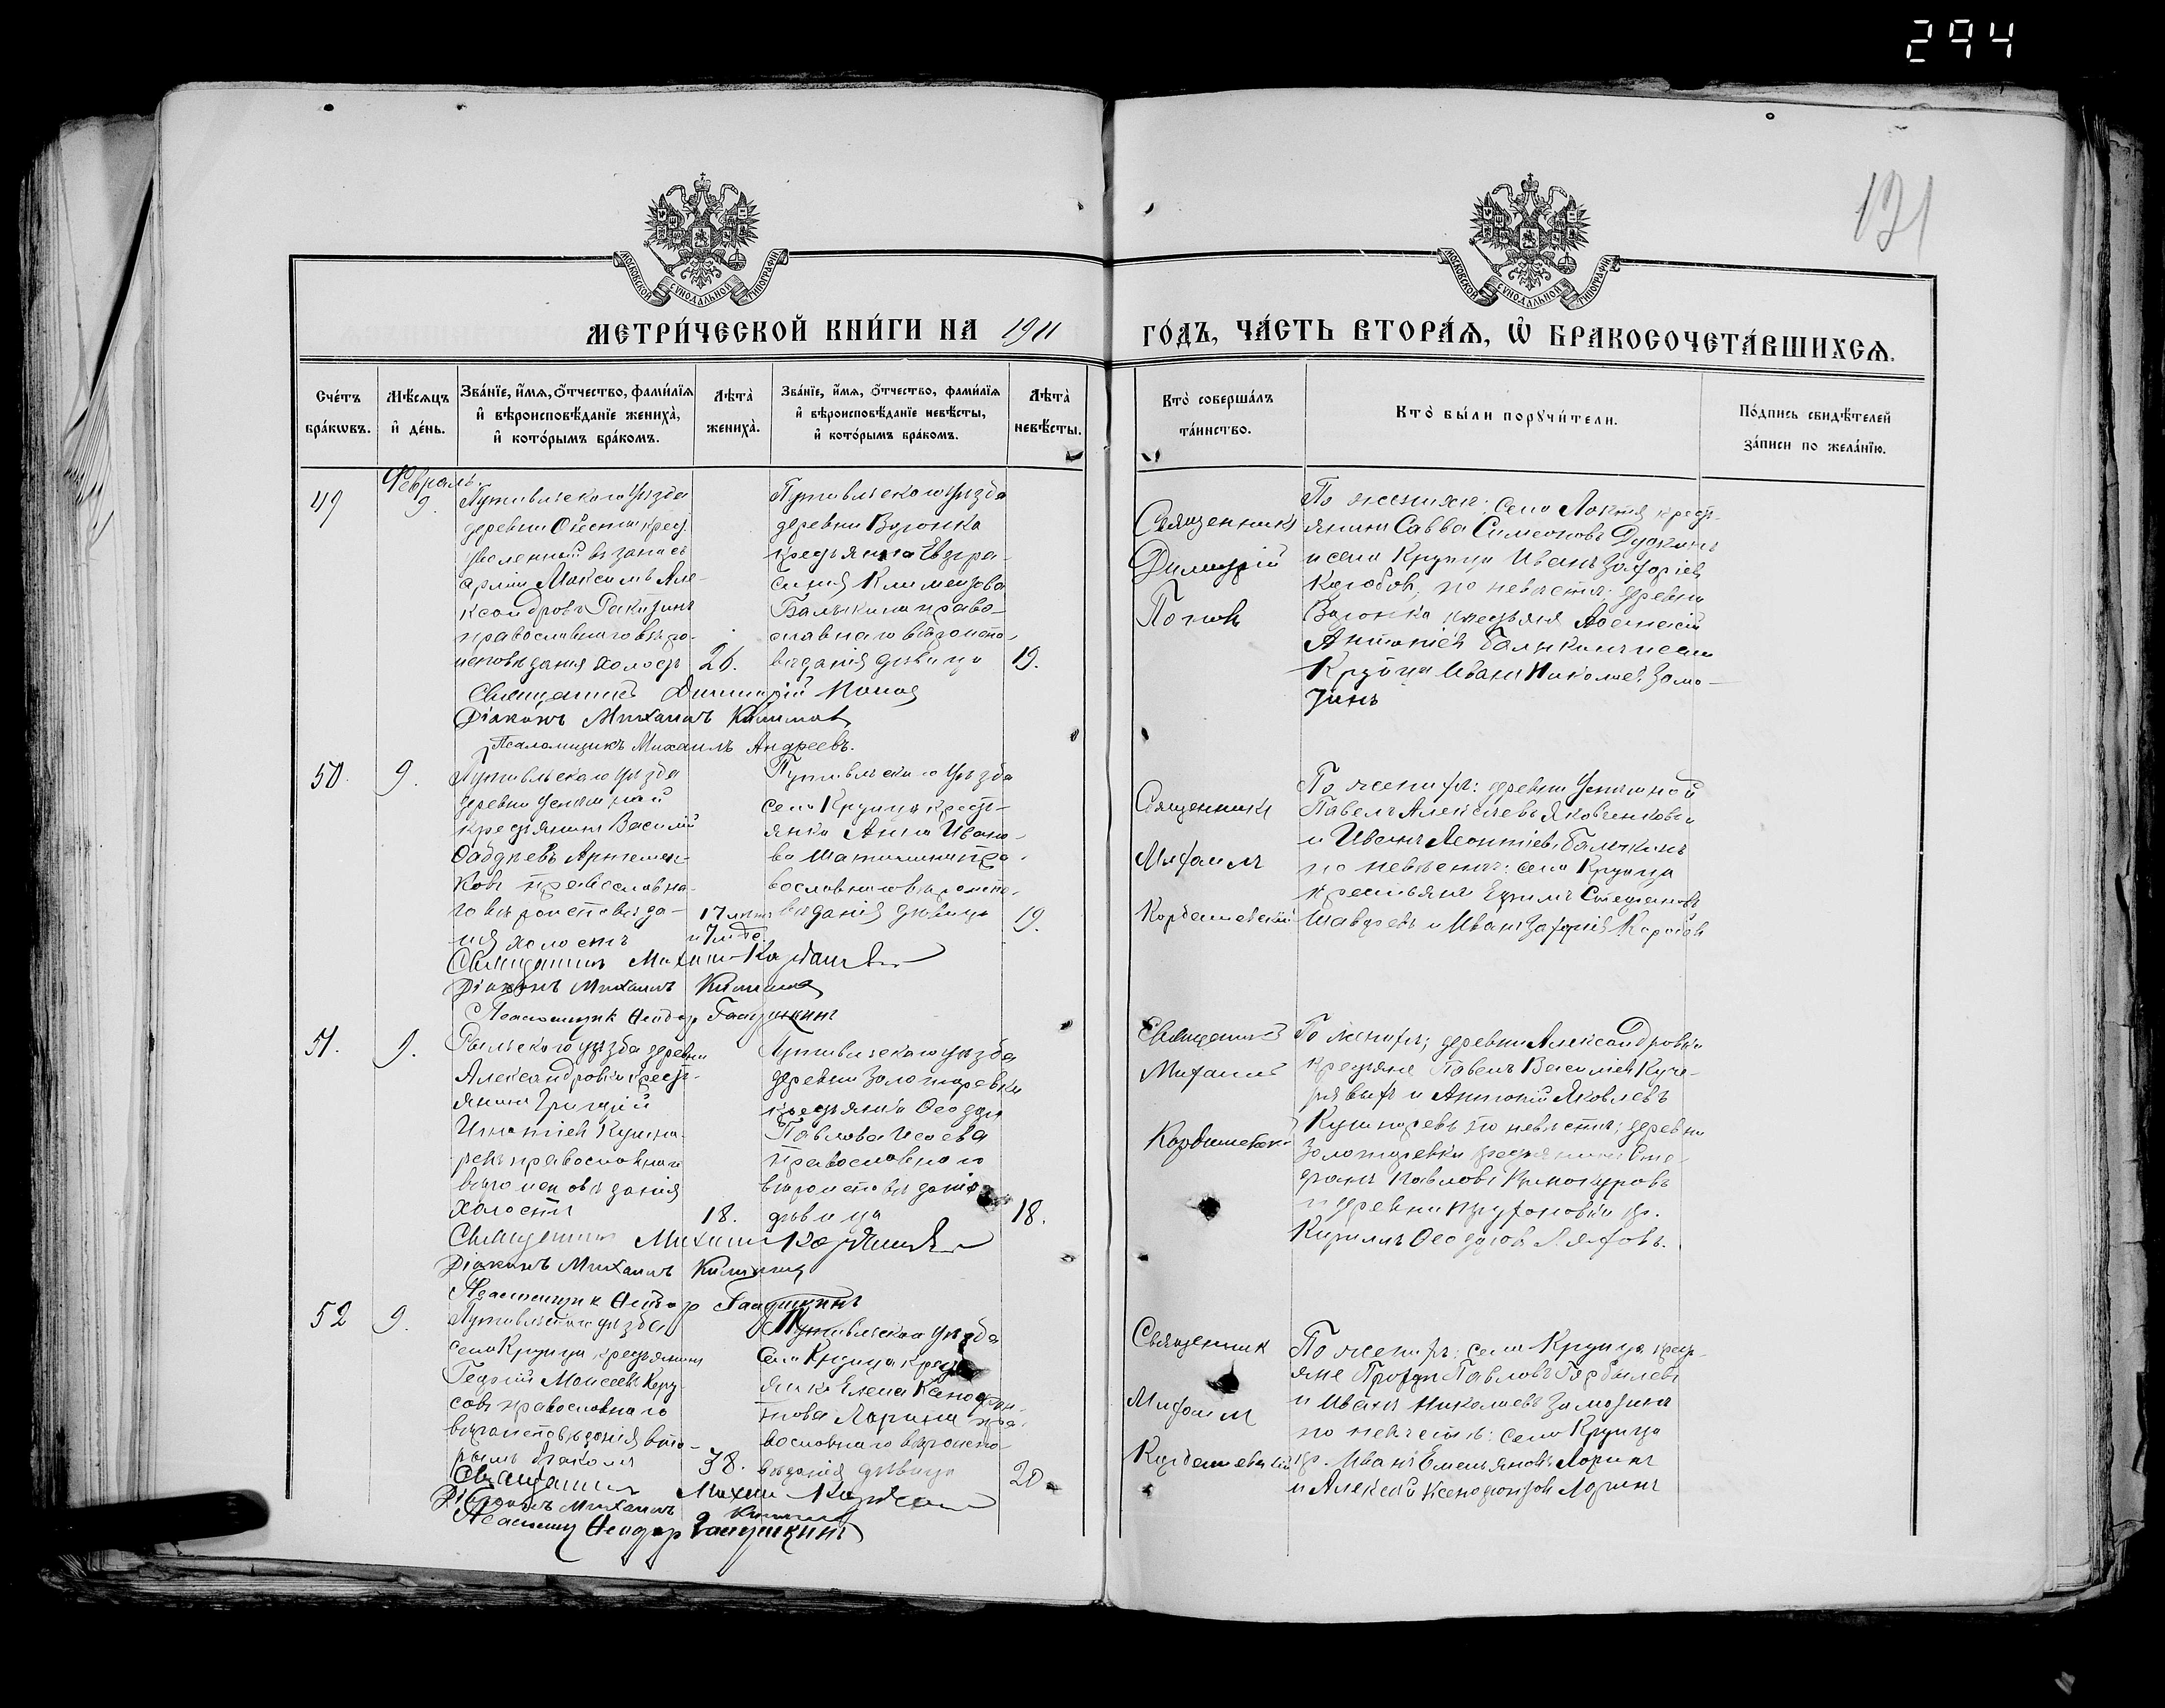 294
131
МОСКОВСКОЙ СУНОДАЛЬНОЙ ТИПОГРАФІИ
МОСКОВСКОЙ СУНОДАЛЬНОЙ ТИПОГРАФІИ
МЕТРИ́ЧЕСКОЙ КНИ́ГИ НА 1911
ГО́ДЪ, ЧА́СТЬ ВТОРА́Ѧ, Ѽ БРАКОСОЧЕТА́ВШИХСѦ.
Сче́тъ бра́кωвъ.
Мѣ́сяцъ и҆ де́нь.
Зва́нїе, и҆́мѧ, ѻ҆́тчество, фами́лїѧ и҆ вѣроисповѣ́данїе жениха̀, и҆ кото́рымъ бра́комъ.
Лѣта̀ жениха̀.
Зва́нїе, и҆́мѧ, ѻ҆́тчество, фами́лїѧ и҆ вѣроисповѣ́данїе невѣ́сты, и҆ кото́рымъ бра́комъ.
Лѣта̀ невѣ́сты.
Кто̀ соверша́лъ та́инство.
Кто̀ бы́ли порꙋчи́тели.
По́дпись свидѣ́телей за́писи по жела́нїю.
Февраль
49
9.
Путивльскаго уѣзда
деревни
уволенный въ запасъ
арміи Максимъ Але-
ксандровъ Ракитинъ
православнаго вѣро-
исповѣданія холостъ
26.
Путивльскаго уѣзда
деревни Воронка
крестьянка Евфра-
синія Климентова
Балыкина право-
славнаго вѣроиспо-
вѣданія дѣвица
19.
Священникъ
Димитрій
Поповъ
По женихѣ: села Локня крест-
янинъ Савва Симеоновъ
и села Крупца Иванъ Захаріевъ
Коробовъ, по невѣстѣ: деревни
Воронка крестьяне Алексій
Антоніевъ Балыкинъ и села
Крупца Иванъ Николаевъ Замо-
тинъ
Священникъ Димитрій Поповъ
Діаконъ Михаилъ
Псаломщикъ Михаилъ Андреевъ.
50.
9.
Путивльскаго уѣзда
деревни
крестьянинъ Василій
Артемен-
ковъ православна-
го вѣроисповѣда-
нія холостъ
17 лѣтъ
и 7 мѣс.
Путивльскаго уѣзда
села Крупца крест-
янка Анна Ивано-
ва пра-
вославнаго вѣроиспо-
вѣданія дѣвица
19.
Священникъ
Михаилъ
Кордашевскій
По женихѣ: деревни
Павелъ Алексѣевъ Яковенковъ
и Иванъ Леонтіевъ Балыкинъ
по невѣстѣ: села Крупца
крестьяне Ефимъ Стефановъ
и Иванъ Захаріевъ Коробовъ
Священникъ Михаилъ Кордашевскій
Діаконъ Михаилъ
Псаломщикъ Ѳеодоръ Галушкинъ
51.
9.
Рыльскаго уѣзда деревни
Александровки крест-
янинъ Григорій
Игнатіевъ Кушна-
ревъ православнаго
вѣроисповѣданія
холостъ
18.
Путивльскаго уѣзда
деревни Золотаревки
крестьянка
Павлова Исаева
православнаго
вѣроисповѣданія
дѣвица
18.
Священникъ
Михаилъ
Кордашевскій
По женихѣ; деревни Александровки
крестьяне Павелъ Василіевъ Куче-
рявыхъ и Антоній Яковлевъ
Кушнаревъ по невѣстѣ; деревни
Золотаревки крестьянинъ Сте-
фанъ Павловъ Винокуровъ
и деревни кр.
Кириллъ Ляховъ.
Священникъ Михаилъ Кордашевскій
Діаконъ Михаилъ
Псаломщикъ Ѳеодоръ Галушкинъ
52
9.
Путивльскаго уѣзда
села Крупца крестьянинъ
Георгій Моисеевъ
православнаго
вѣроисповѣданія вто-
рымъ бракомъ
38.
Путивльскаго уѣзда
села Крупца крест-
янка Елена Ксенофон-
това Ларина пра-
вославнаго вѣроиспо-
вѣданія дѣвица
20.
Священникъ
Михаилъ
Кордашевскій
По женихѣ: села Крупца крест-
яне Павловъ
и Иванъ Николаевъ Замотинъ
по невѣстѣ: села Крупца
кр. Иванъ Емельяновъ Ларинъ
и Алексѣй Ксенофонтовъ Ларинъ
Священникъ Михаилъ Кордашевскій
Діаконъ Михаилъ
Псаломщикъ Ѳеодоръ Галушкинъ